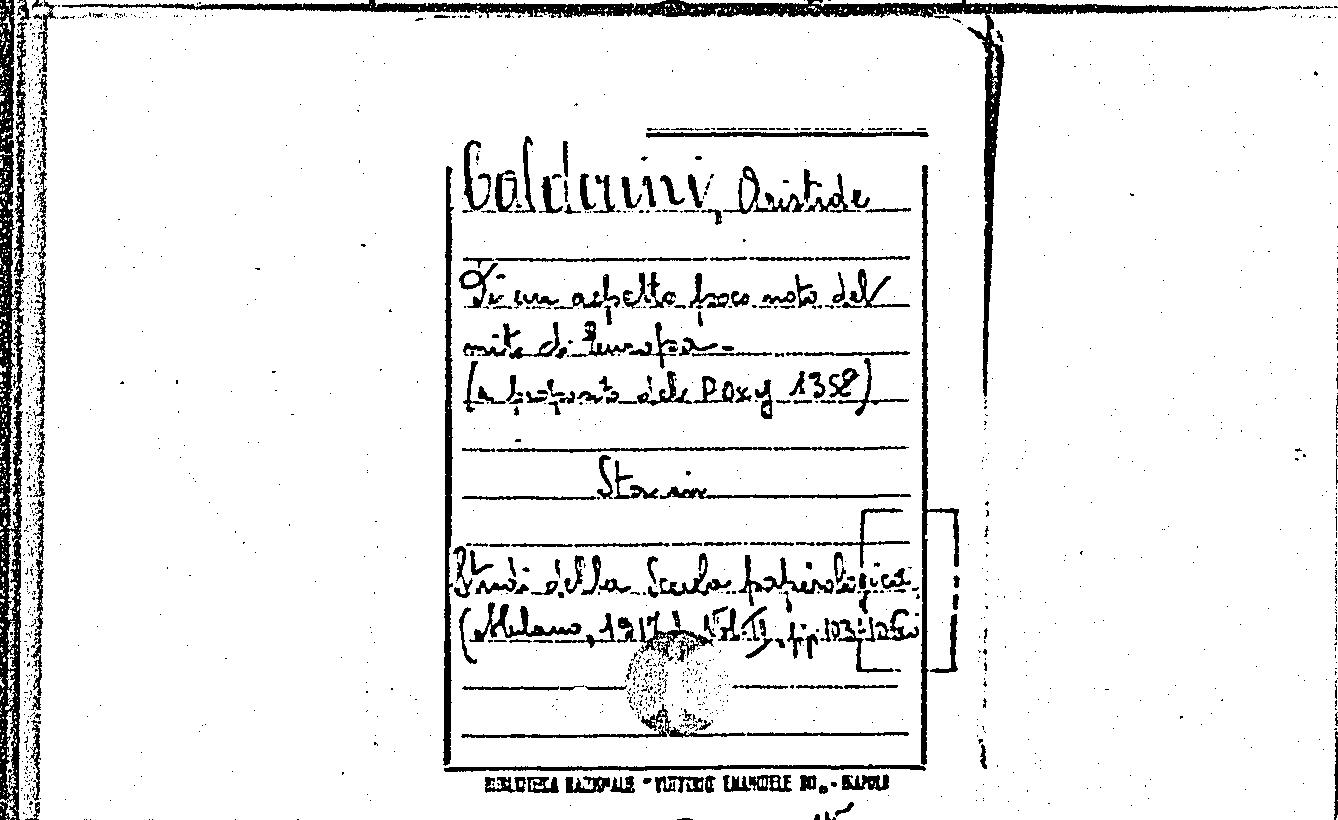 Calderini, Aristide
Di un aspetto poco noto del
mito di Europa -
(a proposito del P Oxy 1358)
Sta in
Studi della Scuola papirologica
(Milano, 1917), Vol. II, pp.
BIBLIOTECA NAZIONALE "VITTORIO EMANUELE III" - NAPOLI